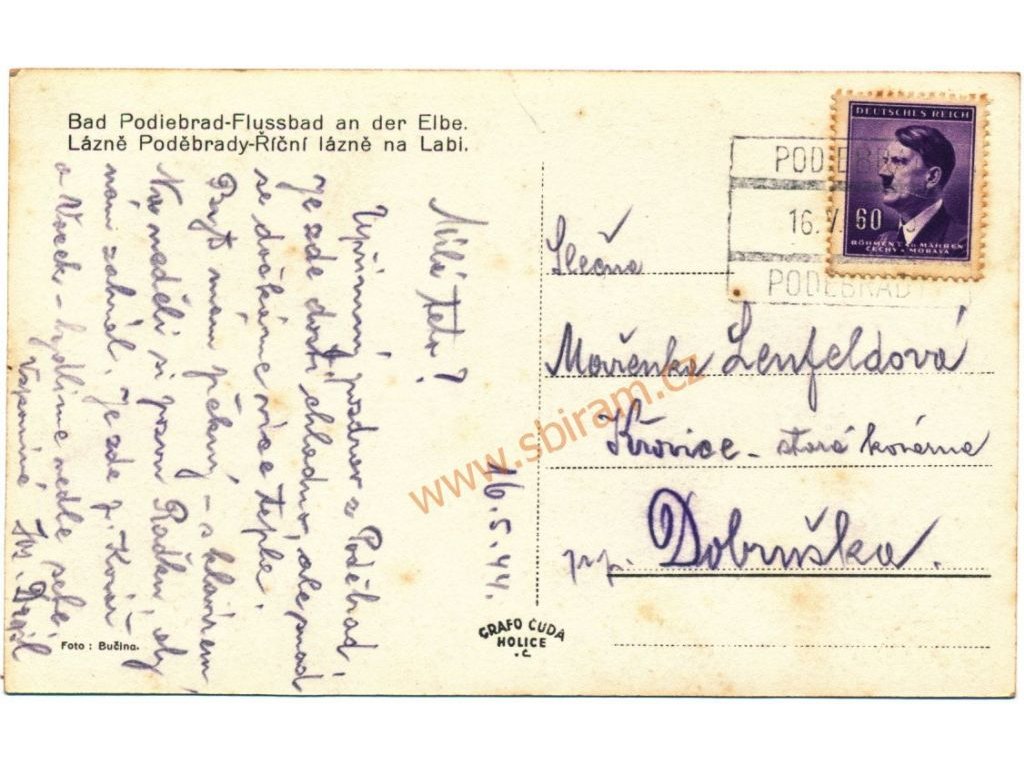 Bad Podiebrad-Flussbad an der Elbe.
Lázně Poděbrady-Říční lázně na Labi.
Milá teto!
16.5.44.
Upřímný pozdrav z Poděbrad
Je zde dosti chladno, ale snad
se dočkáme více tepla.
Byt mám pěkný - s klavírem
Na neděli si pozvu Radku, aby
nám zahrál. Je zde p. Kovář
a Vacek - bydlíme vedle sebe
Vzpomíná
Foto : Bučina.
GRAFO ČUDA
HOLICE
.č.
DEUTSCHES REICH
60
BÖHMEN u. MÄHREN
ČECHY a MORAVA
PODIEBRAD
16. V.
PODĚBRAD
Slečna
Mařenka Lenfeldová
Křovice - stará kovárna
pp. Dobruška.
www.sbiram.cz